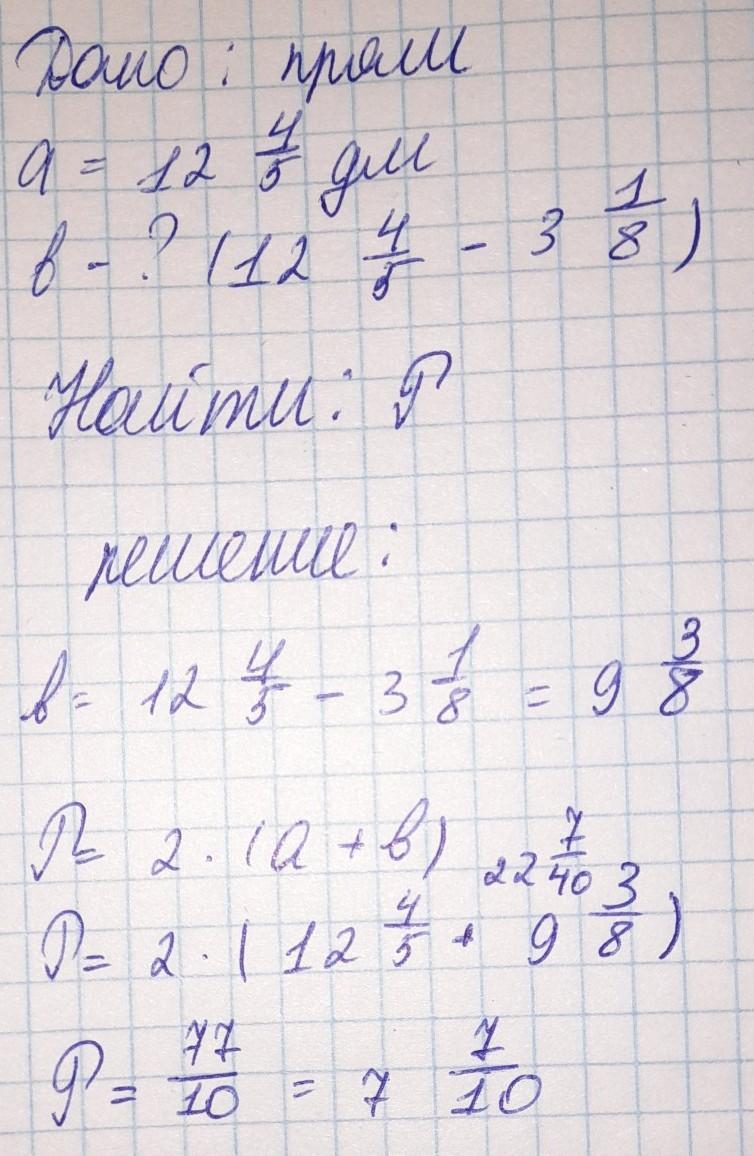 Дано: прям
a = 12 4/5 дм
b - ? (12 4/5 - 3 1/8)
Найти: P
решение:
b = 12 4/5 - 3 1/8 = 9 3/8
P = 2 · (a + b)
22 7/40
P = 2 · (12 4/5 + 9 3/8)
P = 77/10 = 7 7/10